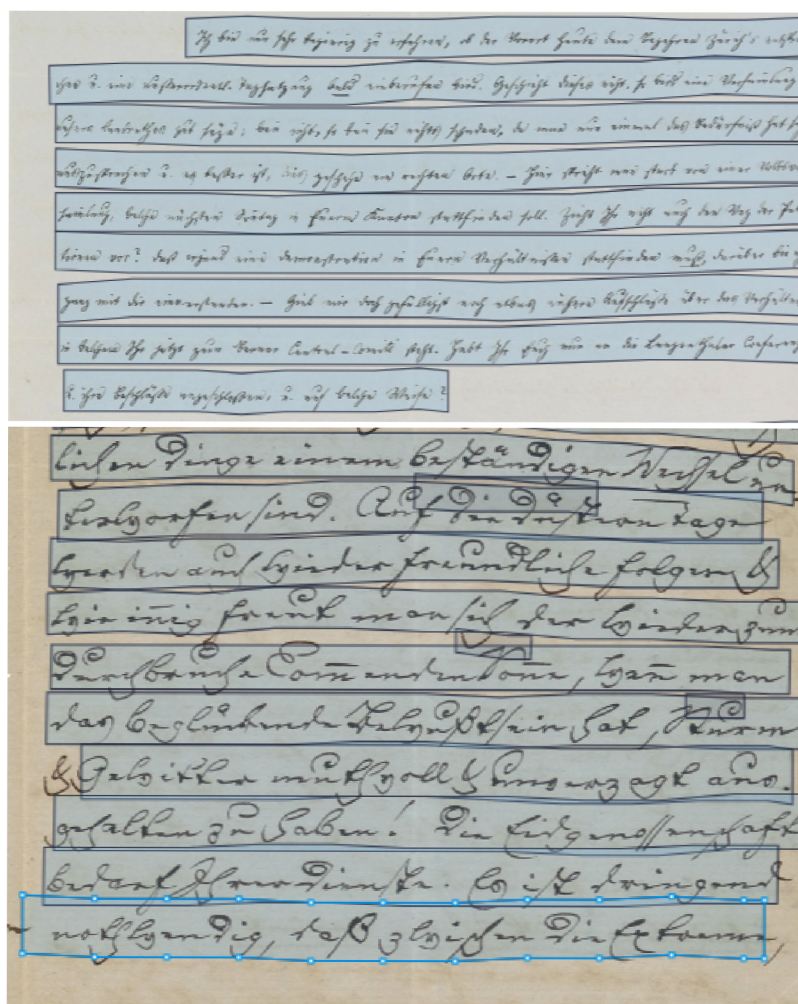 Ich bin nur sehr begierig zu erfahren, ob der Vorort heute dem Begehren Zürich's
u. eine außerordentl. Tagsatzung bald einberufen wird. Geschieht dieses nicht, so wird eine
gut seyn; wenn nicht, so kann sie nichts schaden, da man nun einmal das Bedürfniß hat
auszusprechen u. es besser ist, dies geschehe am rechten Orte. – Hier spricht man stark von einer
welche nächsten Sonntag in Euerm Kanton stattfinden soll. Zieht Ihr nicht auch den Weg der
tionen vor? daß irgend eine demonstration in Euern Verhältnissen stattfinden muß, darüber bin
ganz mit dir einverstanden. – Gieb mir doch gefälligst noch etwas nähere Aufschlüsse über das
in welchem Ihr jetzt zum Berner Central-Comité steht. Habt Ihr Euch nun an die Langenthaler
u. ihre Beschlüsse angeschlossen, u. auf welche Weise?
lichen Dinge einem beständigen Wechsel un
terworfen sind. Auf die düstern Tage
werden auch wieder freundliche folgen &
wie iñig freut man sich der wieder zum
Durchbruche Com̄enden Soñe, wañ man
das beglükende Bewußtsein hat, Sturm
& Gewitter muthvoll & unverzagt aus.
gehalten zu haben! Die Eidgenossenschaft
bedarf Ihrer Dienste. Es ist dringend
nothwendig, daß zwischen die Extreme,